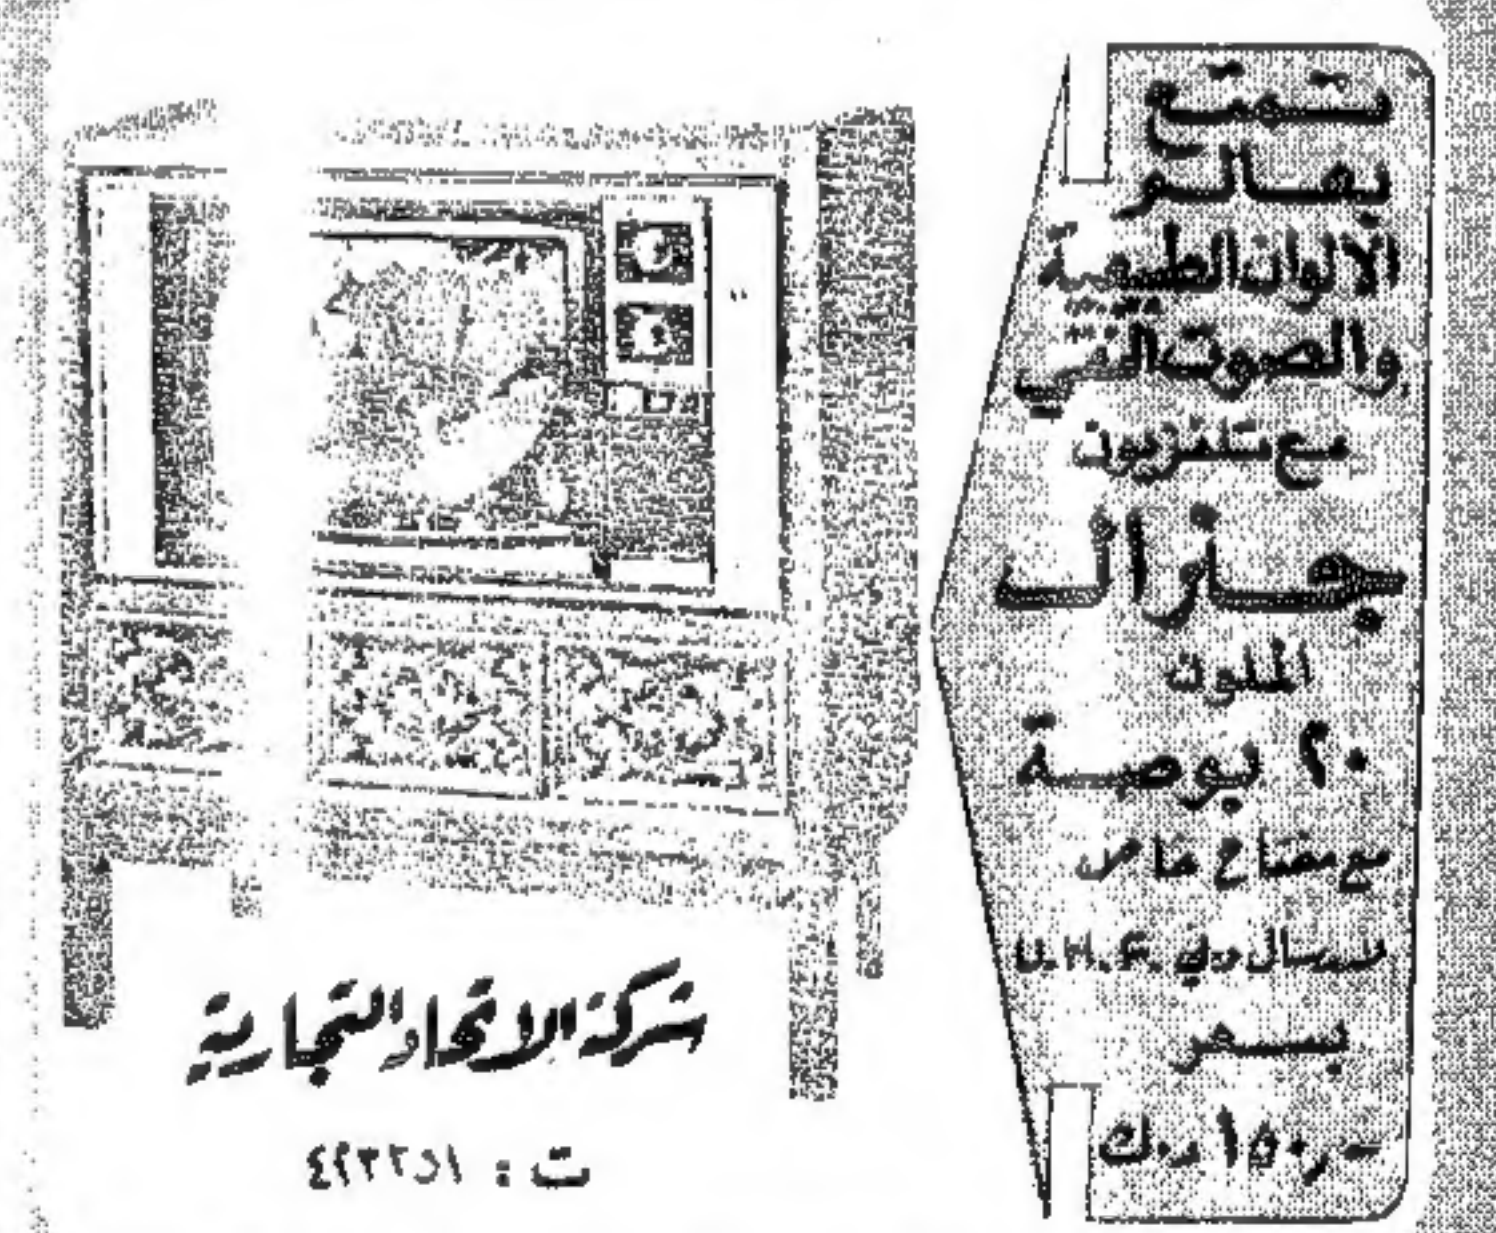 تمتع
بعالم
الالوان الطبيعية
والصوت النقي
مع تلفزيون
جنرال
الملون
٢٠ بوصة
مع مفتاح خاص
U.H.F.
بسعر
-ر١٥٠ د.ك
شركة الاتحاد التجارية
ت :